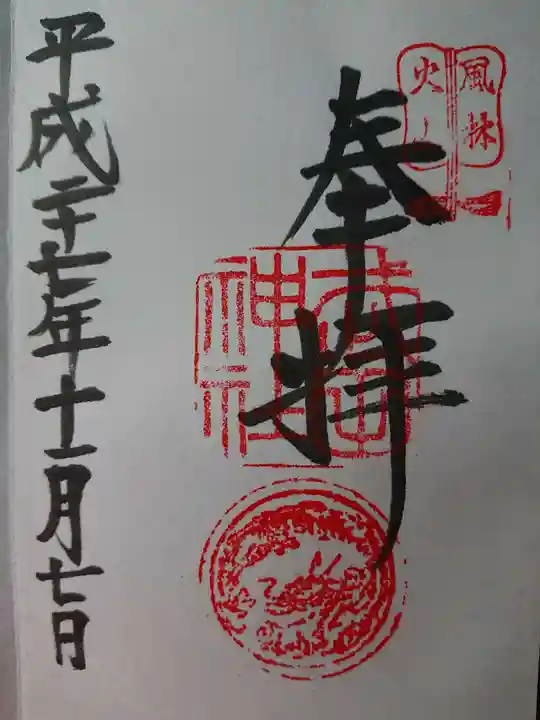 風林
火山
奉拝
武田神社
平成二十七年十一月七日